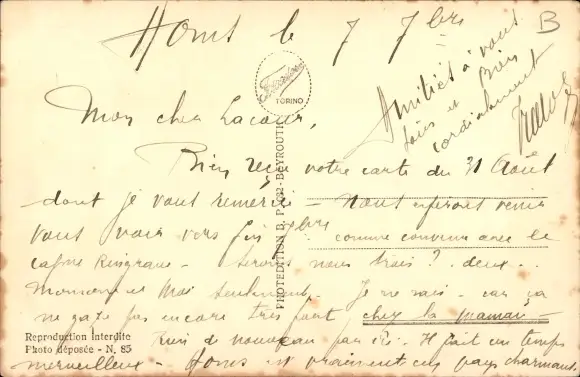 Homs le 7 7bre
B
Amitiés à vous
tous et Bien
cordialement
Mon cher Lacour,
Bien reçu votre carte du 31 Août
dont je vous remercie - Nous espérons venir
vous voir vers fin 7bre comme convenu avec le
serons nous trois? deux..
Monsieur et Moi seulement. Je ne sais - car ça
ne gaze pas encore très fort chez la maman -
Rien de nouveau par ici. Il fait un temps
merveilleux - Homs est vraiment un pays charmant.
Reproduction Interdite
Photo déposée - N. 85
TORINO
PHOTEDITION B. BEYROUTH